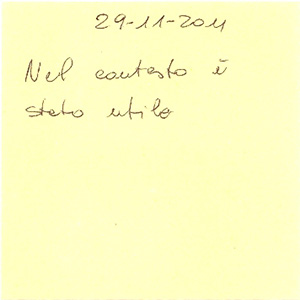 29-11-2011
Nel contesto è
stato utile